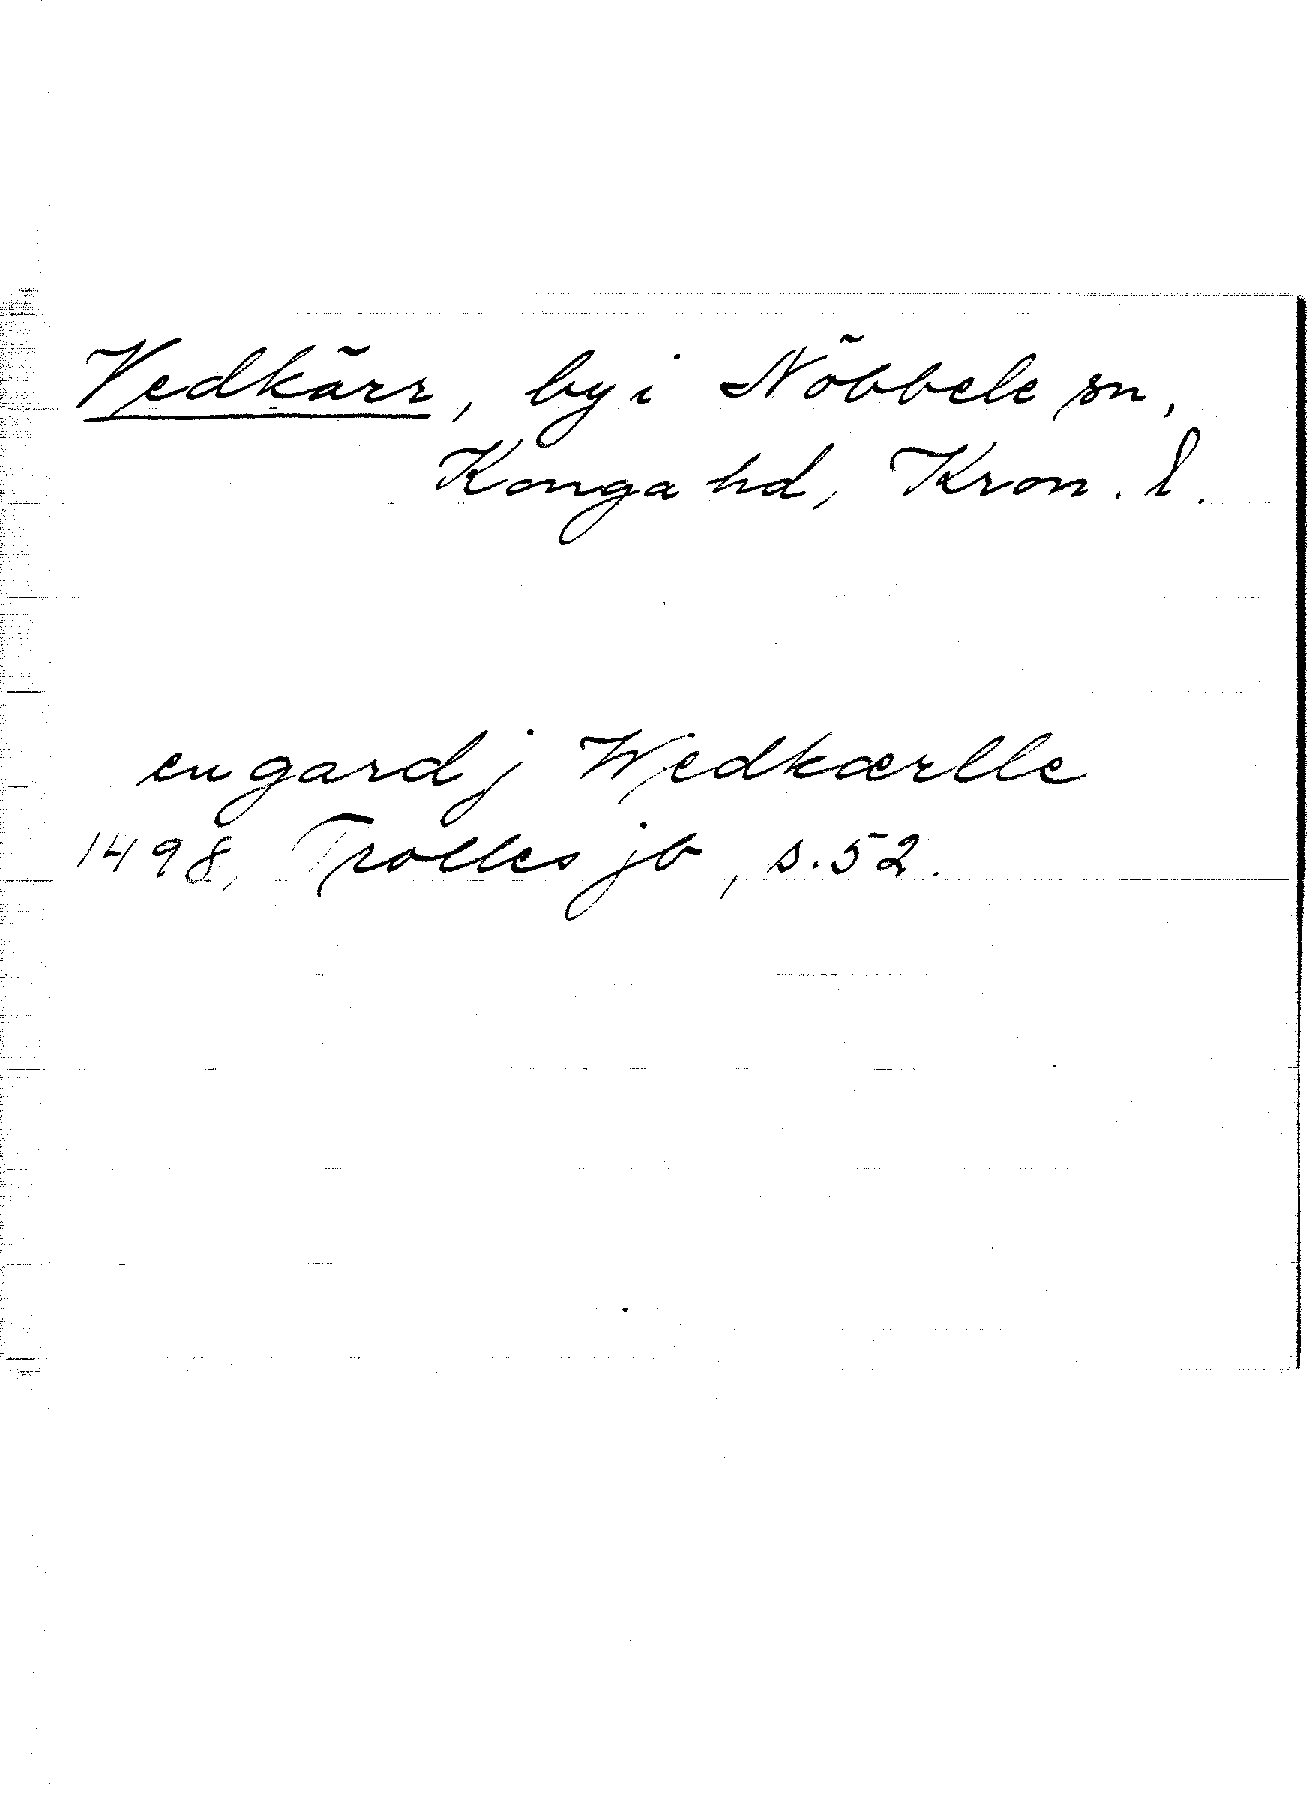 Vedkärr, by i Nöbbele sn,
Konga hd, Kron. l.
en gard j Wedkærlle
1498, Trolles jb, s. 52.